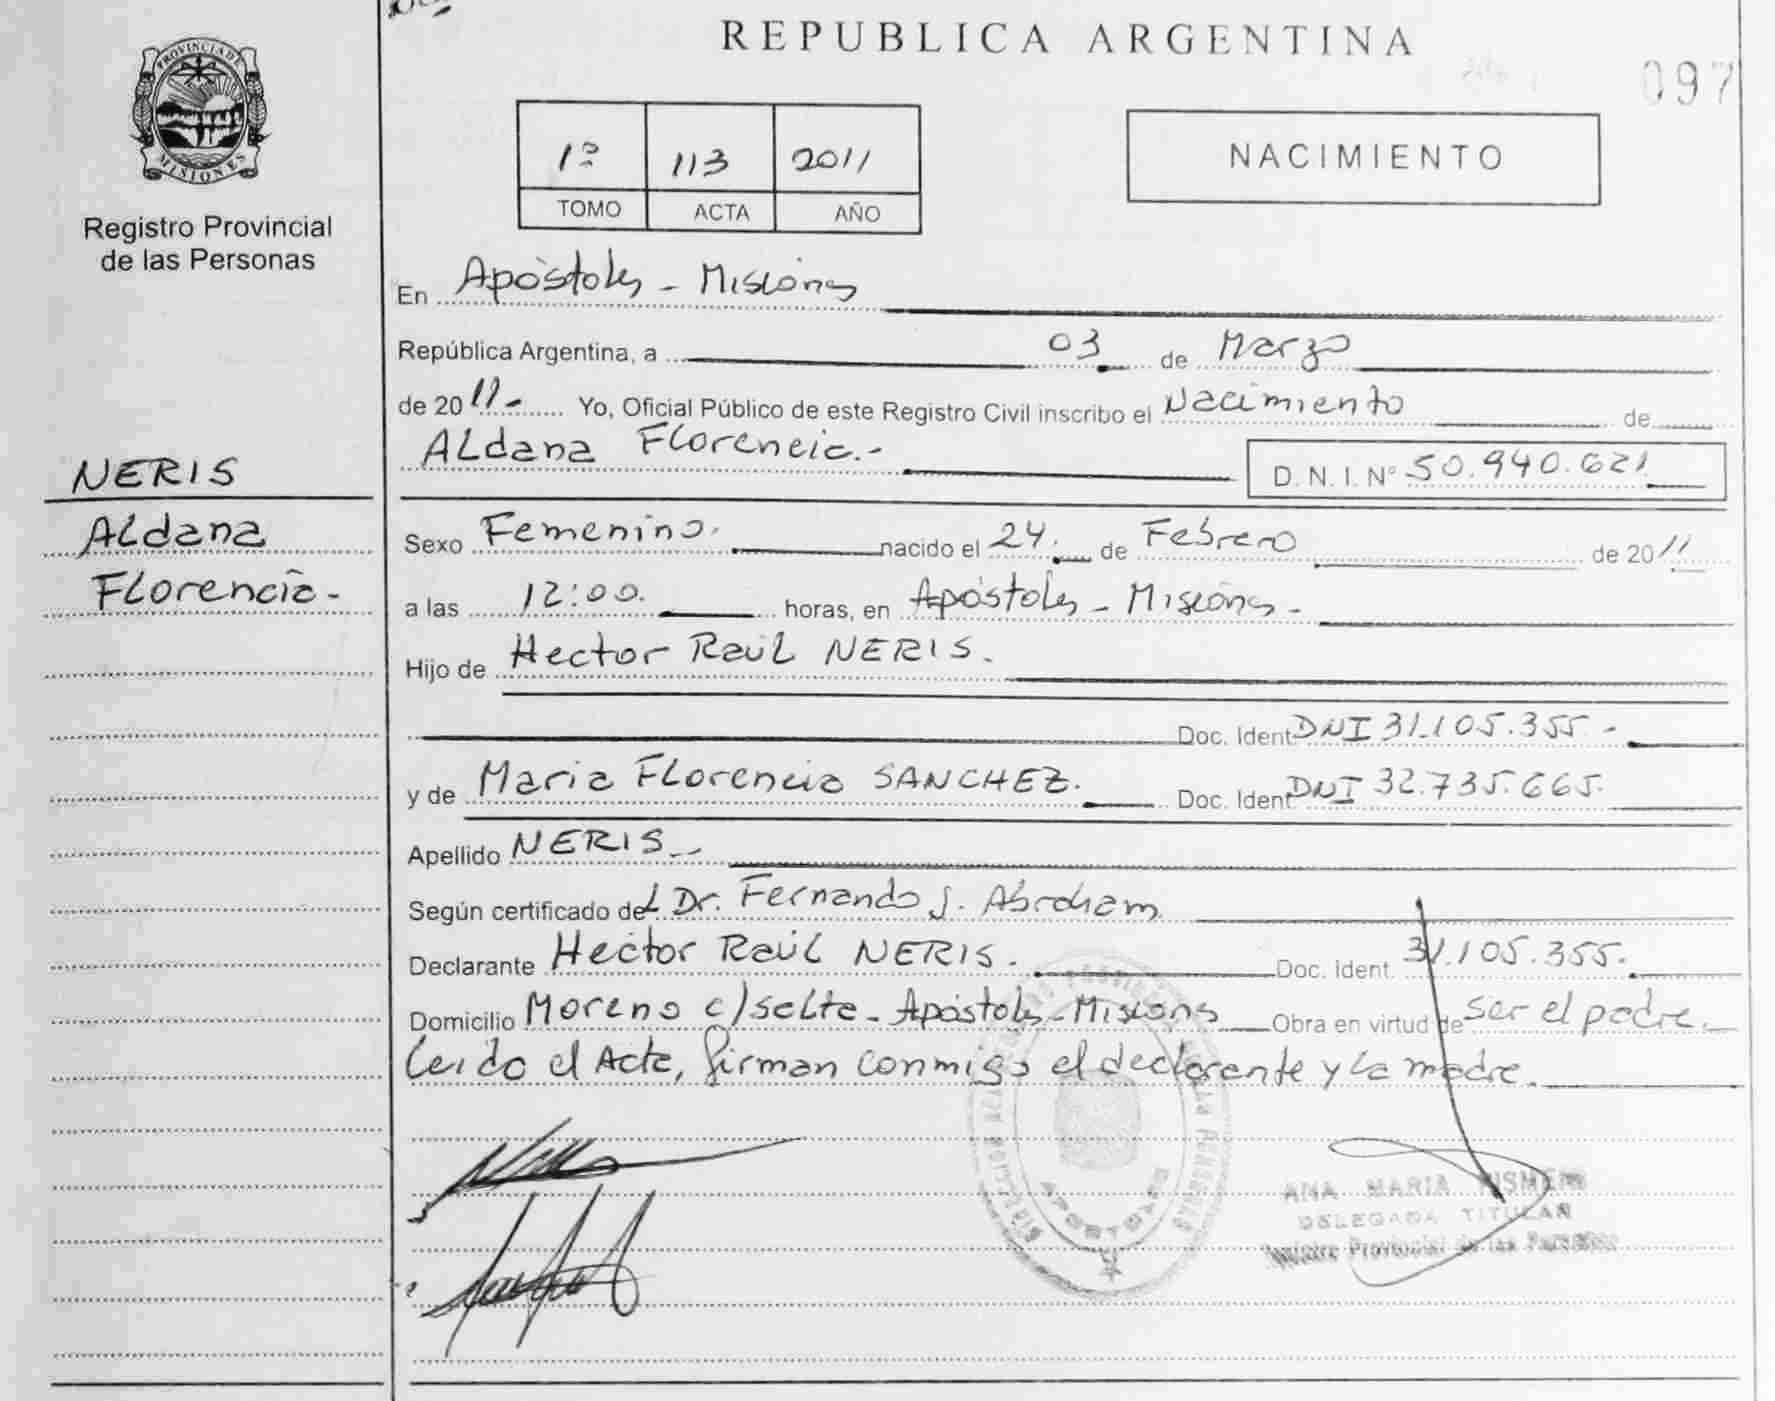 REPUBLICA ARGENTINA
097
PROVINCIA DE
MISIONES
Registro Provincial
de las Personas
1º 113 2011
TOMO ACTA AÑO
NACIMIENTO
En Apóstoles - Misiones
República Argentina, a 03 de Marzo
de 2011.- Yo, Oficial Público de este Registro Civil inscribo el Nacimiento de
Aldana Florencia.-
D. N. I. Nº 50.940.621
NERIS
Aldana
Florencia-
Sexo Femenino. nacido el 24. de Febrero de 2011
a las 12:00. horas, en Apóstoles - Misiones-
Hijo de Hector Raúl NERIS.
Doc. Ident DNI 31.105.355.-
y de Maria Florencia SANCHEZ. Doc. Ident DNI 32.735.665.
Apellido NERIS_-
Según certificado del Dr. Fernando J. Abraham
Declarante Hector Raúl NERIS. Doc. Ident. 31.105.355.
Domicilio Moreno c/salta - Apóstoles - Misiones Obra en virtud de ser el padre.
Leido el Acta, firman conmigo el declarante y la madre.
ANA MARIA
DELEGADA TITULAR
Registro Provincial de las Personas
APOSTOLES